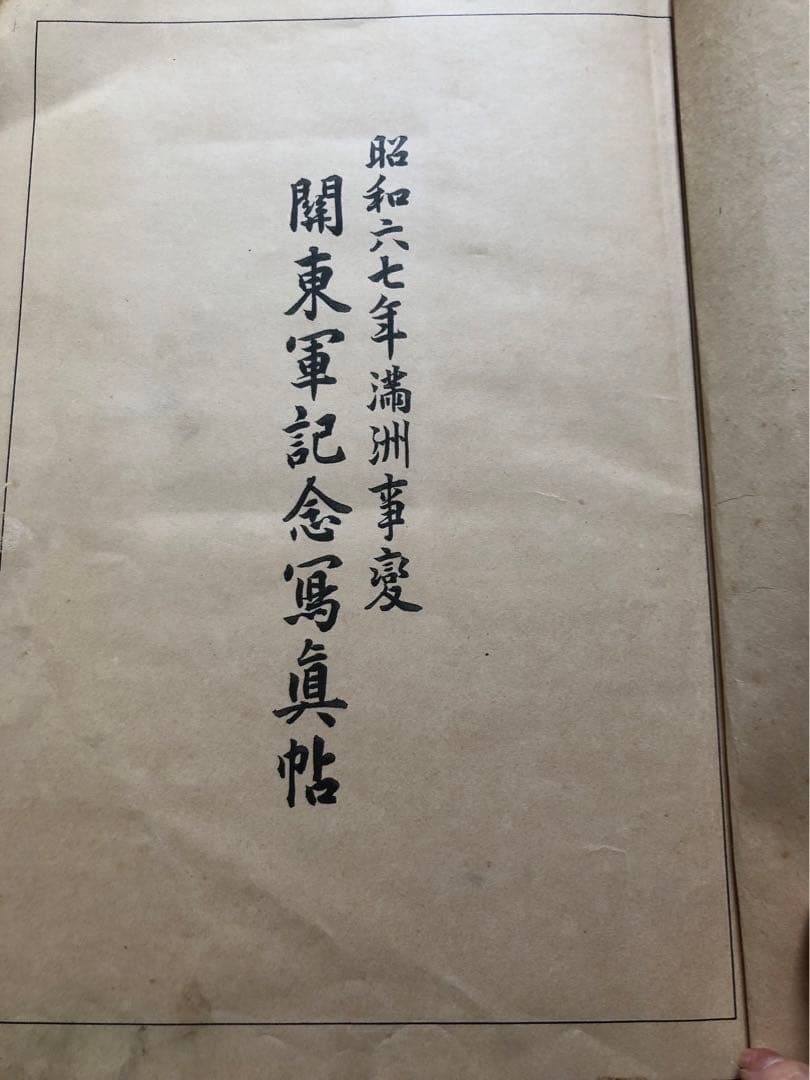 昭和六七年滿洲事變
關東軍記念寫眞帖